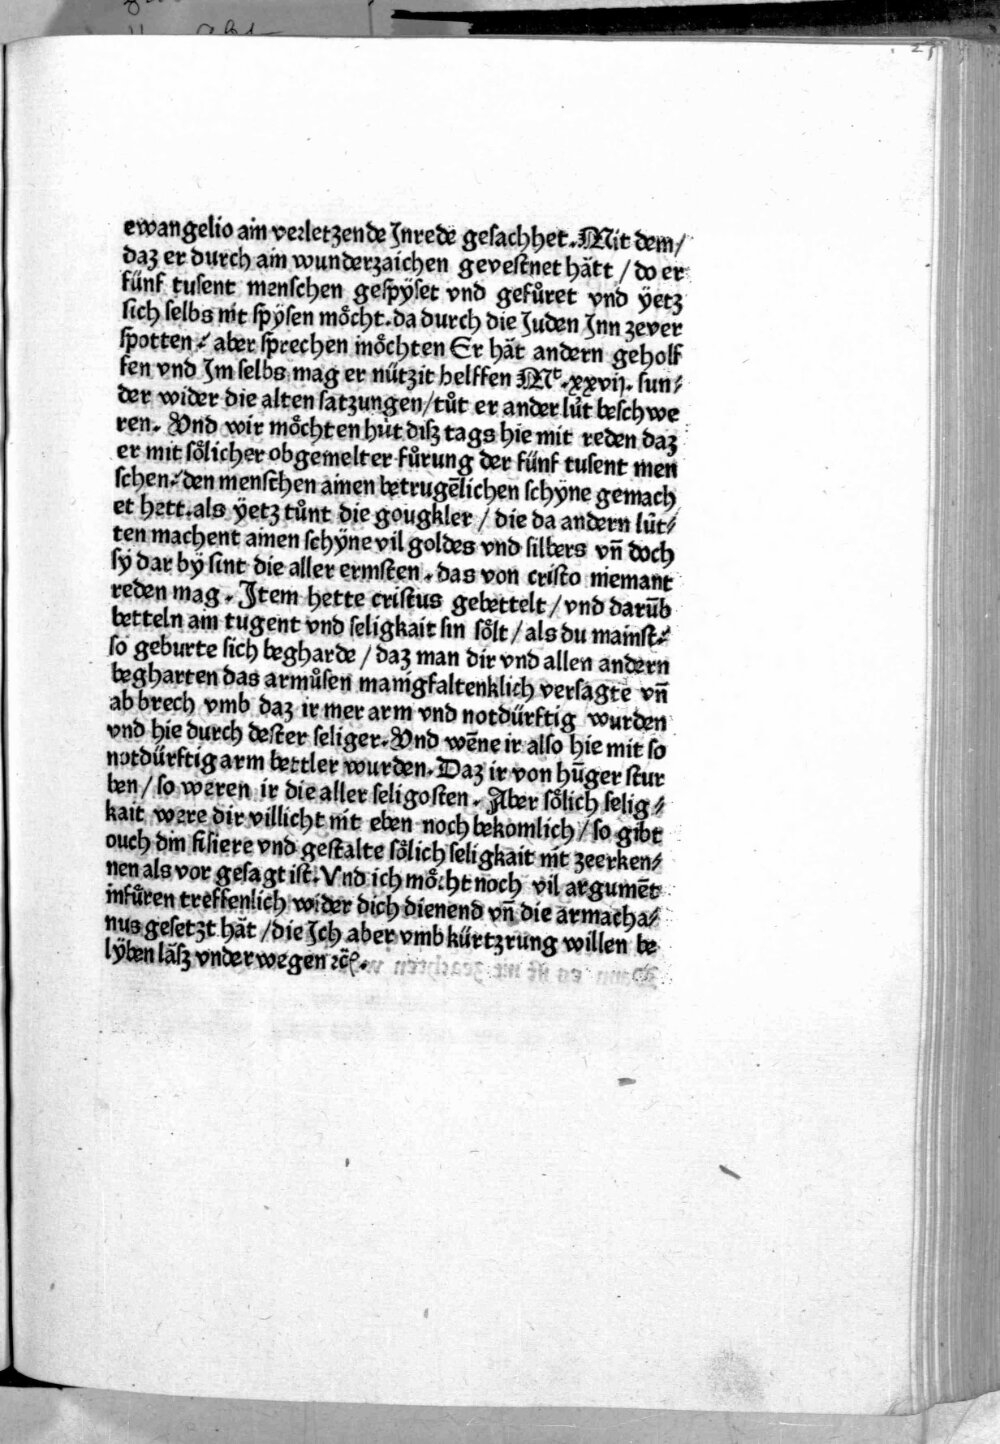 ewangelio ain verletzende Inrede gesachhet. Mit dem/
daz er durch ain wunderzaichen gevestnet hätt / do er
fünf tusent menschen gespÿset vnd gefůret vnd ÿetz
sich selbs nit spÿsen mo̊cht. da durch die Juden Inn zever
spotten⸗ aber sprechen mo̊chten Er hăt andern geholf
fen vnd Im selbs mag er nützit helffen Mt. xxvij. sun⸗
der wider die alten satzungen/tůt er ander lüt beschwe
ren. Vnd wir mo̊chten hüt disz tags hie mit reden daz
er mit so̊licher obgemelter fůrung der fünf tusent men
schen⸗ den menschen ainen betrugēlichen schÿne gemach
et hett. als ÿetz tůnt die gougkler / die da andern lüt⸗
ten machent ainen schÿne vil goldes vnd silbers vn̄ doch
sÿ dar bÿ sint die aller ermsten. das von cristo niemant
reden mag. Item hette cristus gebettelt / vnd darūb
betteln ain tugent vnd seligkait sin so̊lt / als du mainst⸗
so geburte sich begharde / daz man dir vnd allen andern
begharten das armůsen manigfaltenklich versagte vn̄
ab brech vmb daz ir mer arm vnd notdürftig wurden
vnd hie durch dester seliger. Vnd wēne ir also hie mit so
notdürftig arm bettler wurden. Daz ir von hūger stur
ben / so weren ir die aller seligosten. Aber so̊lich selig⸗
kait were dir villicht nit eben noch bekomlich / so gibt
ouch din fisiere vnd gestalte so̊lich seligkait nit zeerken⸗
nen als vor gesagt ist. Vnd ich mo̊cht noch vil argumēt
infůren treffenlich wider dich dienend vn̄ die armacha⸗
nus gesetzt hăt / die Ich aber vmb kürtzrung willen be
lÿben lăsz vnder wegen ⁊c̄.